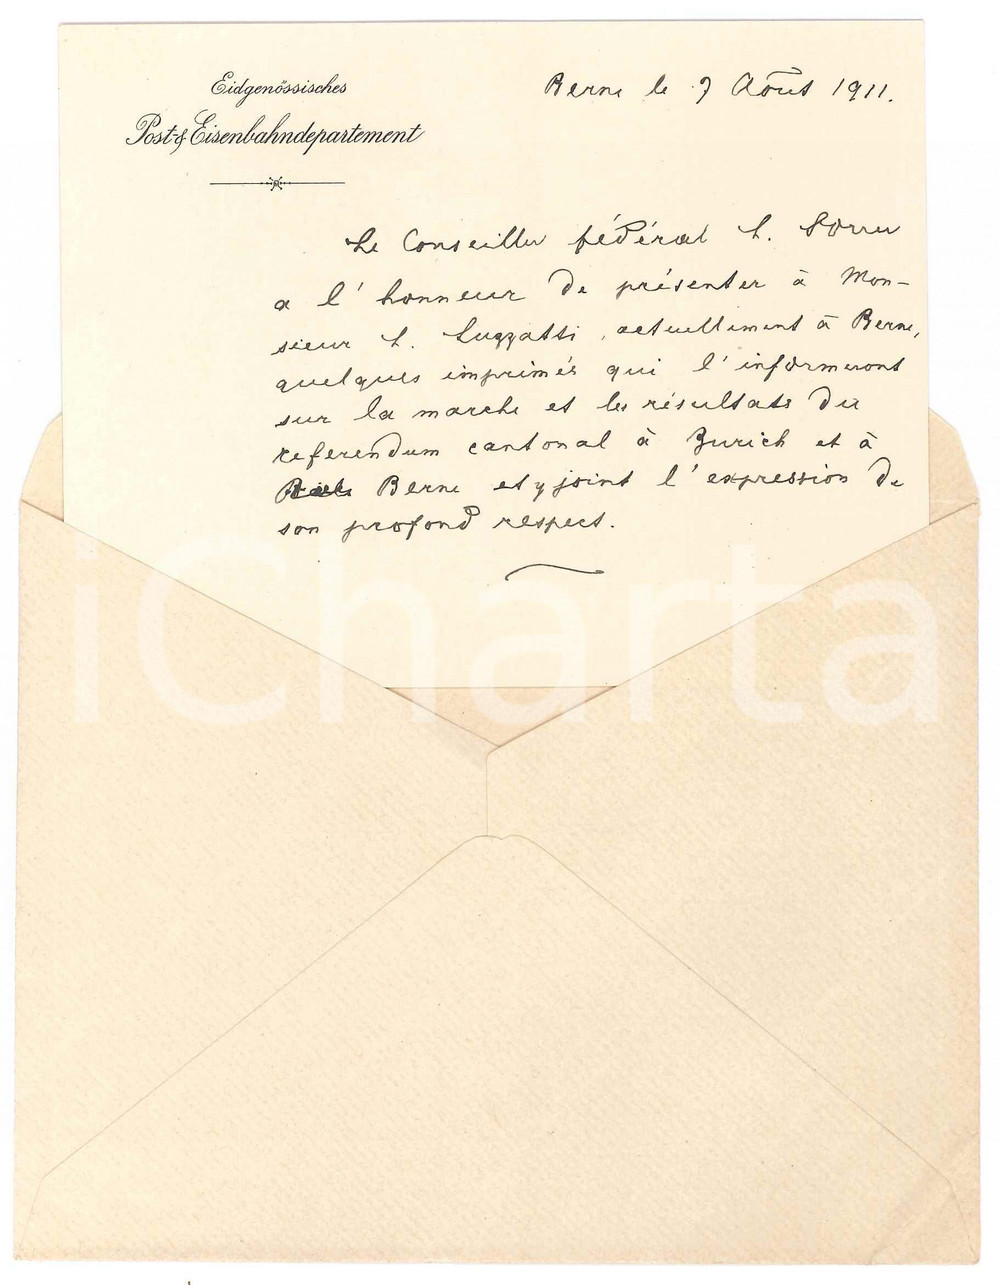 Eidgenössisches
Post & Eisenbahndepartement
Berne le 7 Août 1911.
Le Conseiller fédéral L. Forrer
a l'honneur de présenter à Mon-
sieur L. Luzzatti, actuellement à Berne,
quelques imprimés qui l'informeront
sur la marche et les résultats du
referendum cantonal à Zurich et à
Berne et y joint l'expression de
son profond respect.
iCharta